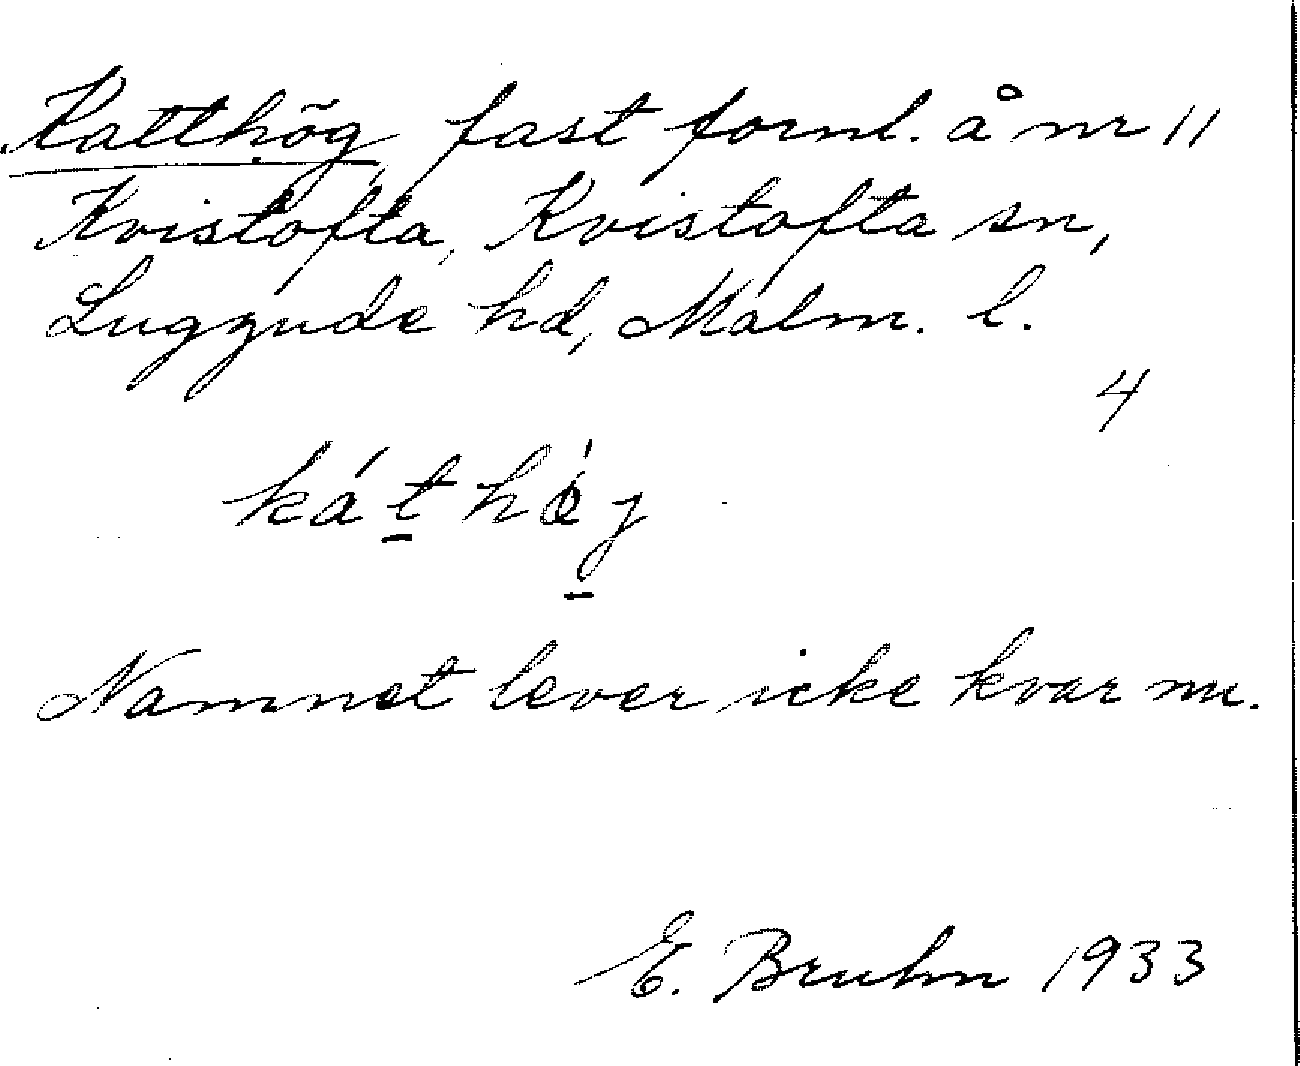 Katthög, fast fornl. å nr 11
Kvistofta, Kvistofta sn,
Luggude hd, Malm. l.
4
kát̲hǿj̲
Namnet lever icke kvar nu.
E. Bruhn 1933